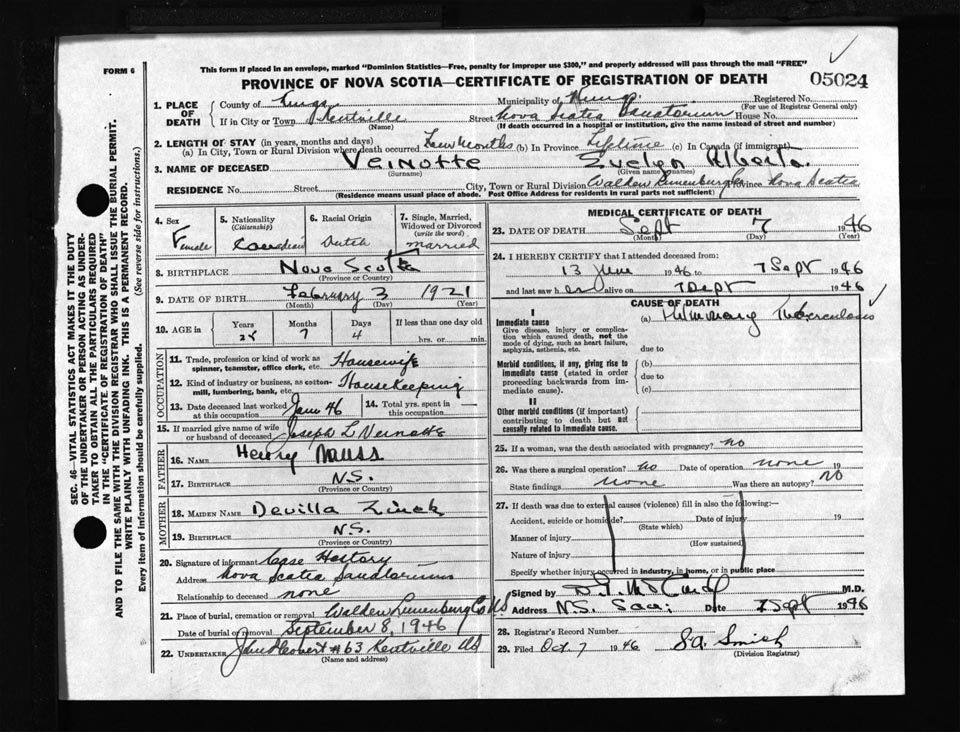 FORM 6
This form if placed in an envelope, marked "Dominion Statistics—Free, penalty for improper use $300," and properly addressed will pass through the mail "FREE"
PROVINCE OF NOVA SCOTIA—CERTIFICATE OF REGISTRATION OF DEATH
05024
1. PLACE OF DEATH
County of Kings Municipality of Kings Registered No.
(For use of Registrar General only)
If in City or Town Kentville Street Nova Scotia Sanatorium House No.
(Name) (If death occurred in a hospital or institution, give the name instead of street and number)
2. LENGTH OF STAY (in years, months and days)
(a) In City, Town or Rural Division where death occurred Months (b) In Province Lifetime (c) In Canada (if immigrant)
3. NAME OF DECEASED Veinotte Evelyn Alberta
(Surname) (Given names)
RESIDENCE No. Street City, Town or Rural Division Walden Lunenburg Co Province Nova Scotia
(Residence means usual place of abode. Post Office Address for residents in rural parts not sufficient)
4. Sex Female
5. Nationality (Citizenship) Canadian
6. Racial Origin Dutch
7. Single, Married, Widowed or Divorced (write the word) Married
8. BIRTHPLACE Nova Scotia
(Province or Country)
9. DATE OF BIRTH February 3 1921
(Month) (Day) (Year)
10. AGE in Years 25 Months 7 Days 4 If less than one day old hrs. or min.
OCCUPATION
11. Trade, profession or kind of work as spinner, teamster, office clerk, etc. Housewife
12. Kind of industry or business, as cotton-mill, lumbering, bank, etc. Housekeeping
13. Date deceased last worked at this occupation Jan 46
14. Total yrs. spent in this occupation —
15. If married give name of wife or husband of deceased Joseph L Veinotte
FATHER
16. NAME Henry Nauss
17. BIRTHPLACE N.S.
(Province or Country)
MOTHER
18. MAIDEN NAME Devilla Zinck
19. BIRTHPLACE N.S.
(Province or Country)
20. Signature of informant Case History
Address Nova Scotia Sanatorium
Relationship to deceased none
21. Place of burial, cremation or removal Walden Lunenburg Co NS
Date of burial or removal September 8, 1946
22. UNDERTAKER Herbert #63 Kentville NS
(Name and address)
MEDICAL CERTIFICATE OF DEATH
23. DATE OF DEATH Sept 7 1946
(Month) (Day) (Year)
24. I HEREBY CERTIFY that I attended deceased from:
13 June 1946 to 7 Sept 1946
and last saw her alive on 7 Sept 1946
CAUSE OF DEATH
I
Immediate cause (a) Pulmonary Tuberculosis
Give disease, injury or complication which caused death, not the mode of dying, such as heart failure, asphyxia, asthenia, etc.
due to
Morbid conditions, if any, giving rise to immediate cause (stated in order proceeding backwards from immediate cause).
(b)
due to
(c)
II
Other morbid conditions (if important) contributing to death but not causally related to immediate cause.
25. If a woman, was the death associated with pregnancy? no
26. Was there a surgical operation? no Date of operation none 19
State findings none Was there an autopsy? No
27. If death was due to external causes (violence) fill in also the following:—
Accident, suicide or homicide? Date of injury 19
(State which)
Manner of injury
(How sustained)
Nature of injury
Specify whether injury occurred in industry, in home, or in public place
Signed by M.D.
Address N.S. San. Date 7 Sept 1946
28. Registrar's Record Number
29. Filed Oct 7 1946 Smith
(Division Registrar)
SEC. 46—VITAL STATISTICS ACT MAKES IT THE DUTY
OF THE UNDERTAKER OR PERSON ACTING AS UNDER-
TAKER TO OBTAIN ALL THE PARTICULARS REQUIRED
IN THE "CERTIFICATE OF REGISTRATION OF DEATH"
AND TO FILE THE SAME WITH THE DIVISION REGISTRAR WHO SHALL ISSUE THE BURIAL PERMIT.
WRITE PLAINLY WITH UNFADING INK. THIS IS A PERMANENT RECORD.
Every item of information should be carefully supplied. (See reverse side for instructions.)